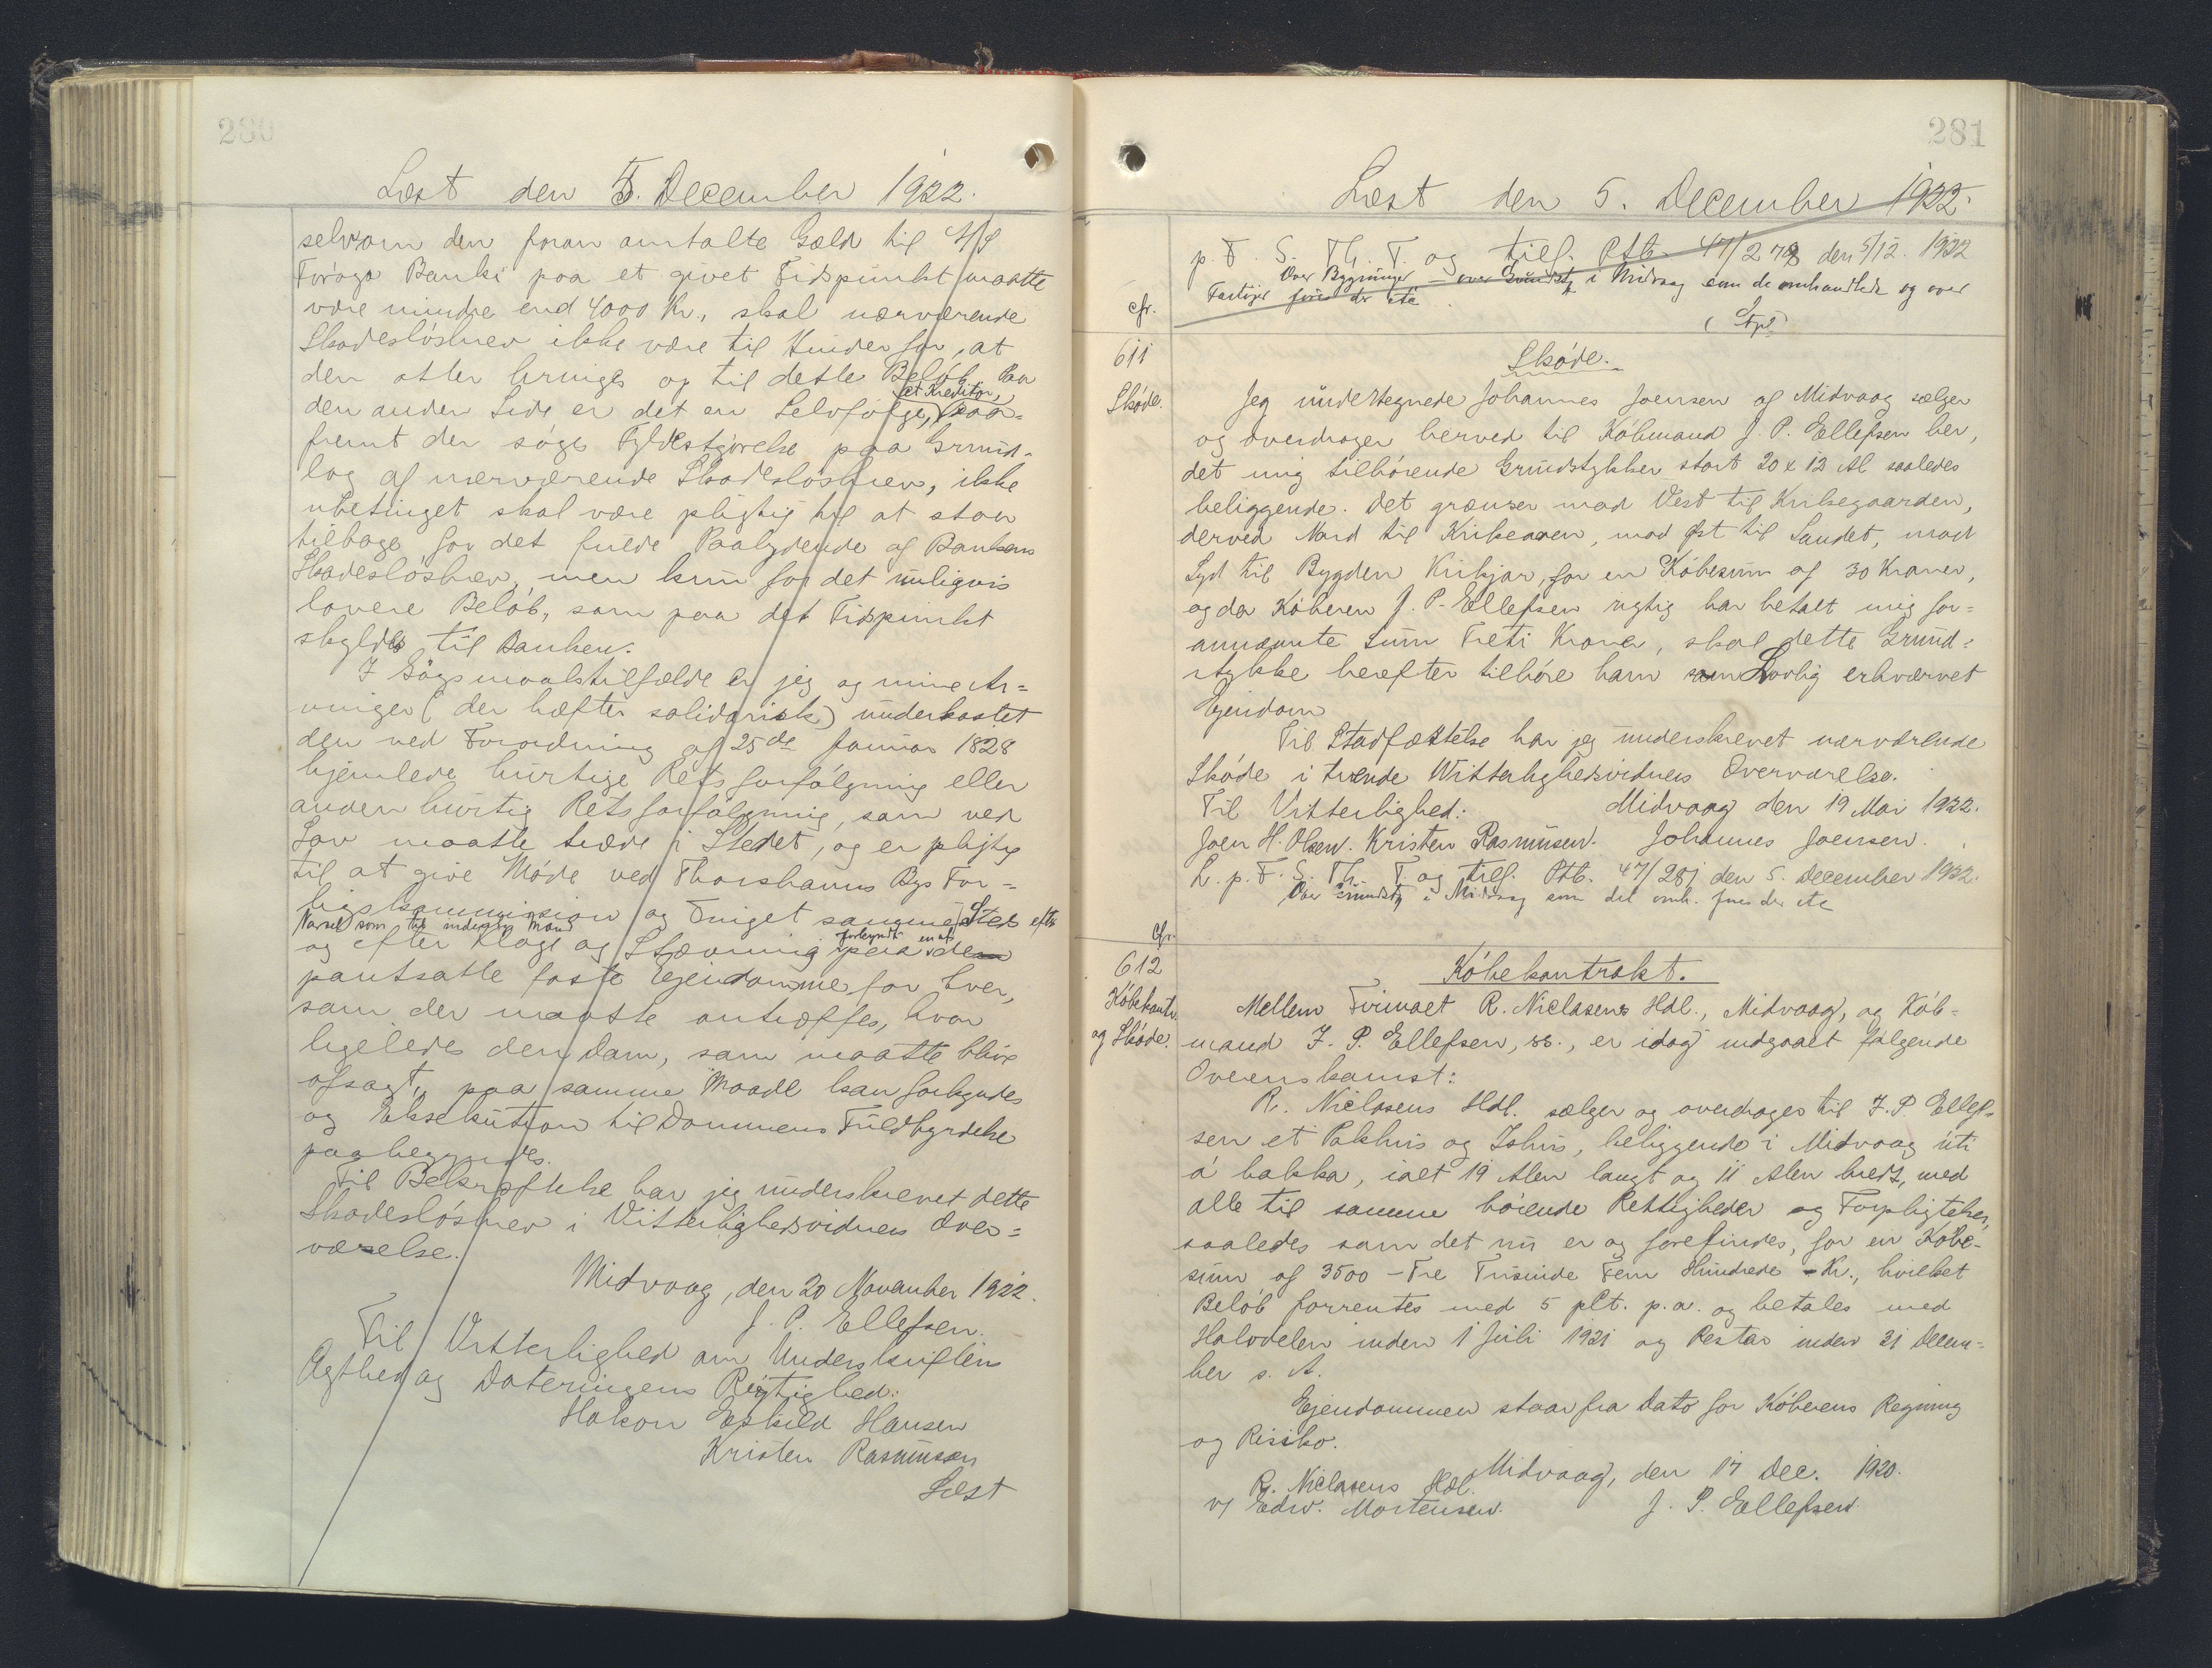 280
Læst den 5. December 1922.
selvom den foran omtalte Gæld til A/S
Føroya Banki paa et givet Tidspunkt maatte
være mindre end 4000 Kr., skal nærværende
Skadesløsbrev ikke være til Hinder for, at
den atter bringes op til dette Beløb. Paa
den anden Side er det en Selvfølge, at Kreditor, saa-
fremt der søges Fyldestgørelse paa Grund-
lag af nærværende Skadesløsbrev, ikke
ubetinget skal være pligtig til at staa
tilbage for det fulde Paalydende af Bankens
Skadesløsbrev, men kun for det muligvis
lavere Beløb, som paa det Tidspunkt
skyldes til Banken.
I Søgsmaalstilfælde er jeg og mine Ar-
vinger (der hæfter solidarisk) underkastet
den ved Forordning af 25de Januar 1828
hjemlede hurtige Retsforfølgning eller
anden hurtig Retsforfølgning, som ved
Lov maatte træde i Stedet, og er pligtig
til at give Møde ved Thorshavns Bys For-
ligskommission og Tinget samme Sted efter
Varsel som til indenbys Mand
og efter Klage og Stævning forkyndt paa en af de
pantsatte faste Ejendomme for hver,
som der maatte antræffes, hvor
ligeledes den Dom, som maatte blive
afsagt, paa samme Maade kan forkyndes
og Eksekution til Dommens Fuldbyrdelse
paabegyndes.
Til Bekræftelse har jeg underskrevet dette
Skadesløsbrev i Vitterlighedsvidners Over-
værelse.
Midvaag, den 20 November 1922.
J. P. Ellefsen.
Til Vitterlighed om Underskriftens
Ægthed og Dateringens Rigtighed:
Hakon Eskild Hansen
Kristen Rasmussen
Læst
281
Læst den 5. December 1922.
p. F. S. Th. T. og tilf. Ptb. 47/278 den 5/12. 1922
Over Bygninger – over Grundst. i Midvaag som de omhandlede og over
Fartøjer fries der ikke
cfr.
611
Skøde.
Skøde.
Jeg undertegnede Johannes Joensen af Midvaag sælger
og overdrager herved til Købmand J. P. Ellefsen her,
det mig tilhørende Grundstykker stort 20 x 12 Al saaledes
beliggende. Det grænser mod Vest til Kirkegaarden,
derved Nord til Kirkeaaen, mod Øst til Sandet, mod
Syd til Bygden Kirkjar, for en Købesum af 30 Kroner,
og da Køberen J. P. Ellefsen rigtig har betalt mig for-
annævnte Sum Treti Kroner, skal dette Grund-
stykke herefter tilhøre ham som Lovlig erhvervet
Ejendom
Til Stadfæstelse har jeg underskrevet nærværende
Skøde i tvende Witterlighedsvidners Overværelse.
Til Vitterlighed: Midvaag den 19 Mai 1922.
Joen H. Olsen. Kristen Rasmussen. Johannes Joensen.
L. p. F. S. Th. T. og tilf. Ptb. 47/281 den 5. December 1922.
Over Grundst. i Midvaag som det omh. fries der ikke
cfr.
612
Købekontr.
og Skøde.
Købekontrakt.
Mellem Firmaet R. Niclasens Hdl., Midvaag, og Køb-
mand J. P. Ellefsen, ss., er idag indgaaet følgende
Overenskomst:
R. Niclasens Hdl. sælger og overdrager til J. P. Ellef-
sen et Pakhus og Ishus, beliggende i Midvaag úti
á bakka, ialt 19 Alen langt og 11 Alen bredt, med
alle til samme hørende Rettigheder og Forpligtelser,
saaledes som det nu er og forefindes, for en Købe-
sum af 3500 – Tre Tusinde Fem Hundrede – Kr., hvilket
Beløb forrentes med 5 pCt. p.a. og betales med
Halvdelen inden 1 Juli 1921 og Resten inden 31 Decem-
ber s. A.
Ejendommen staar fra Dato for Køberens Regning
og Risiko.
Midvaag, den 17 Dec. 1920.
R. Niclasens Hdl.
v/ Edw. Mortensen. J. P. Ellefsen.